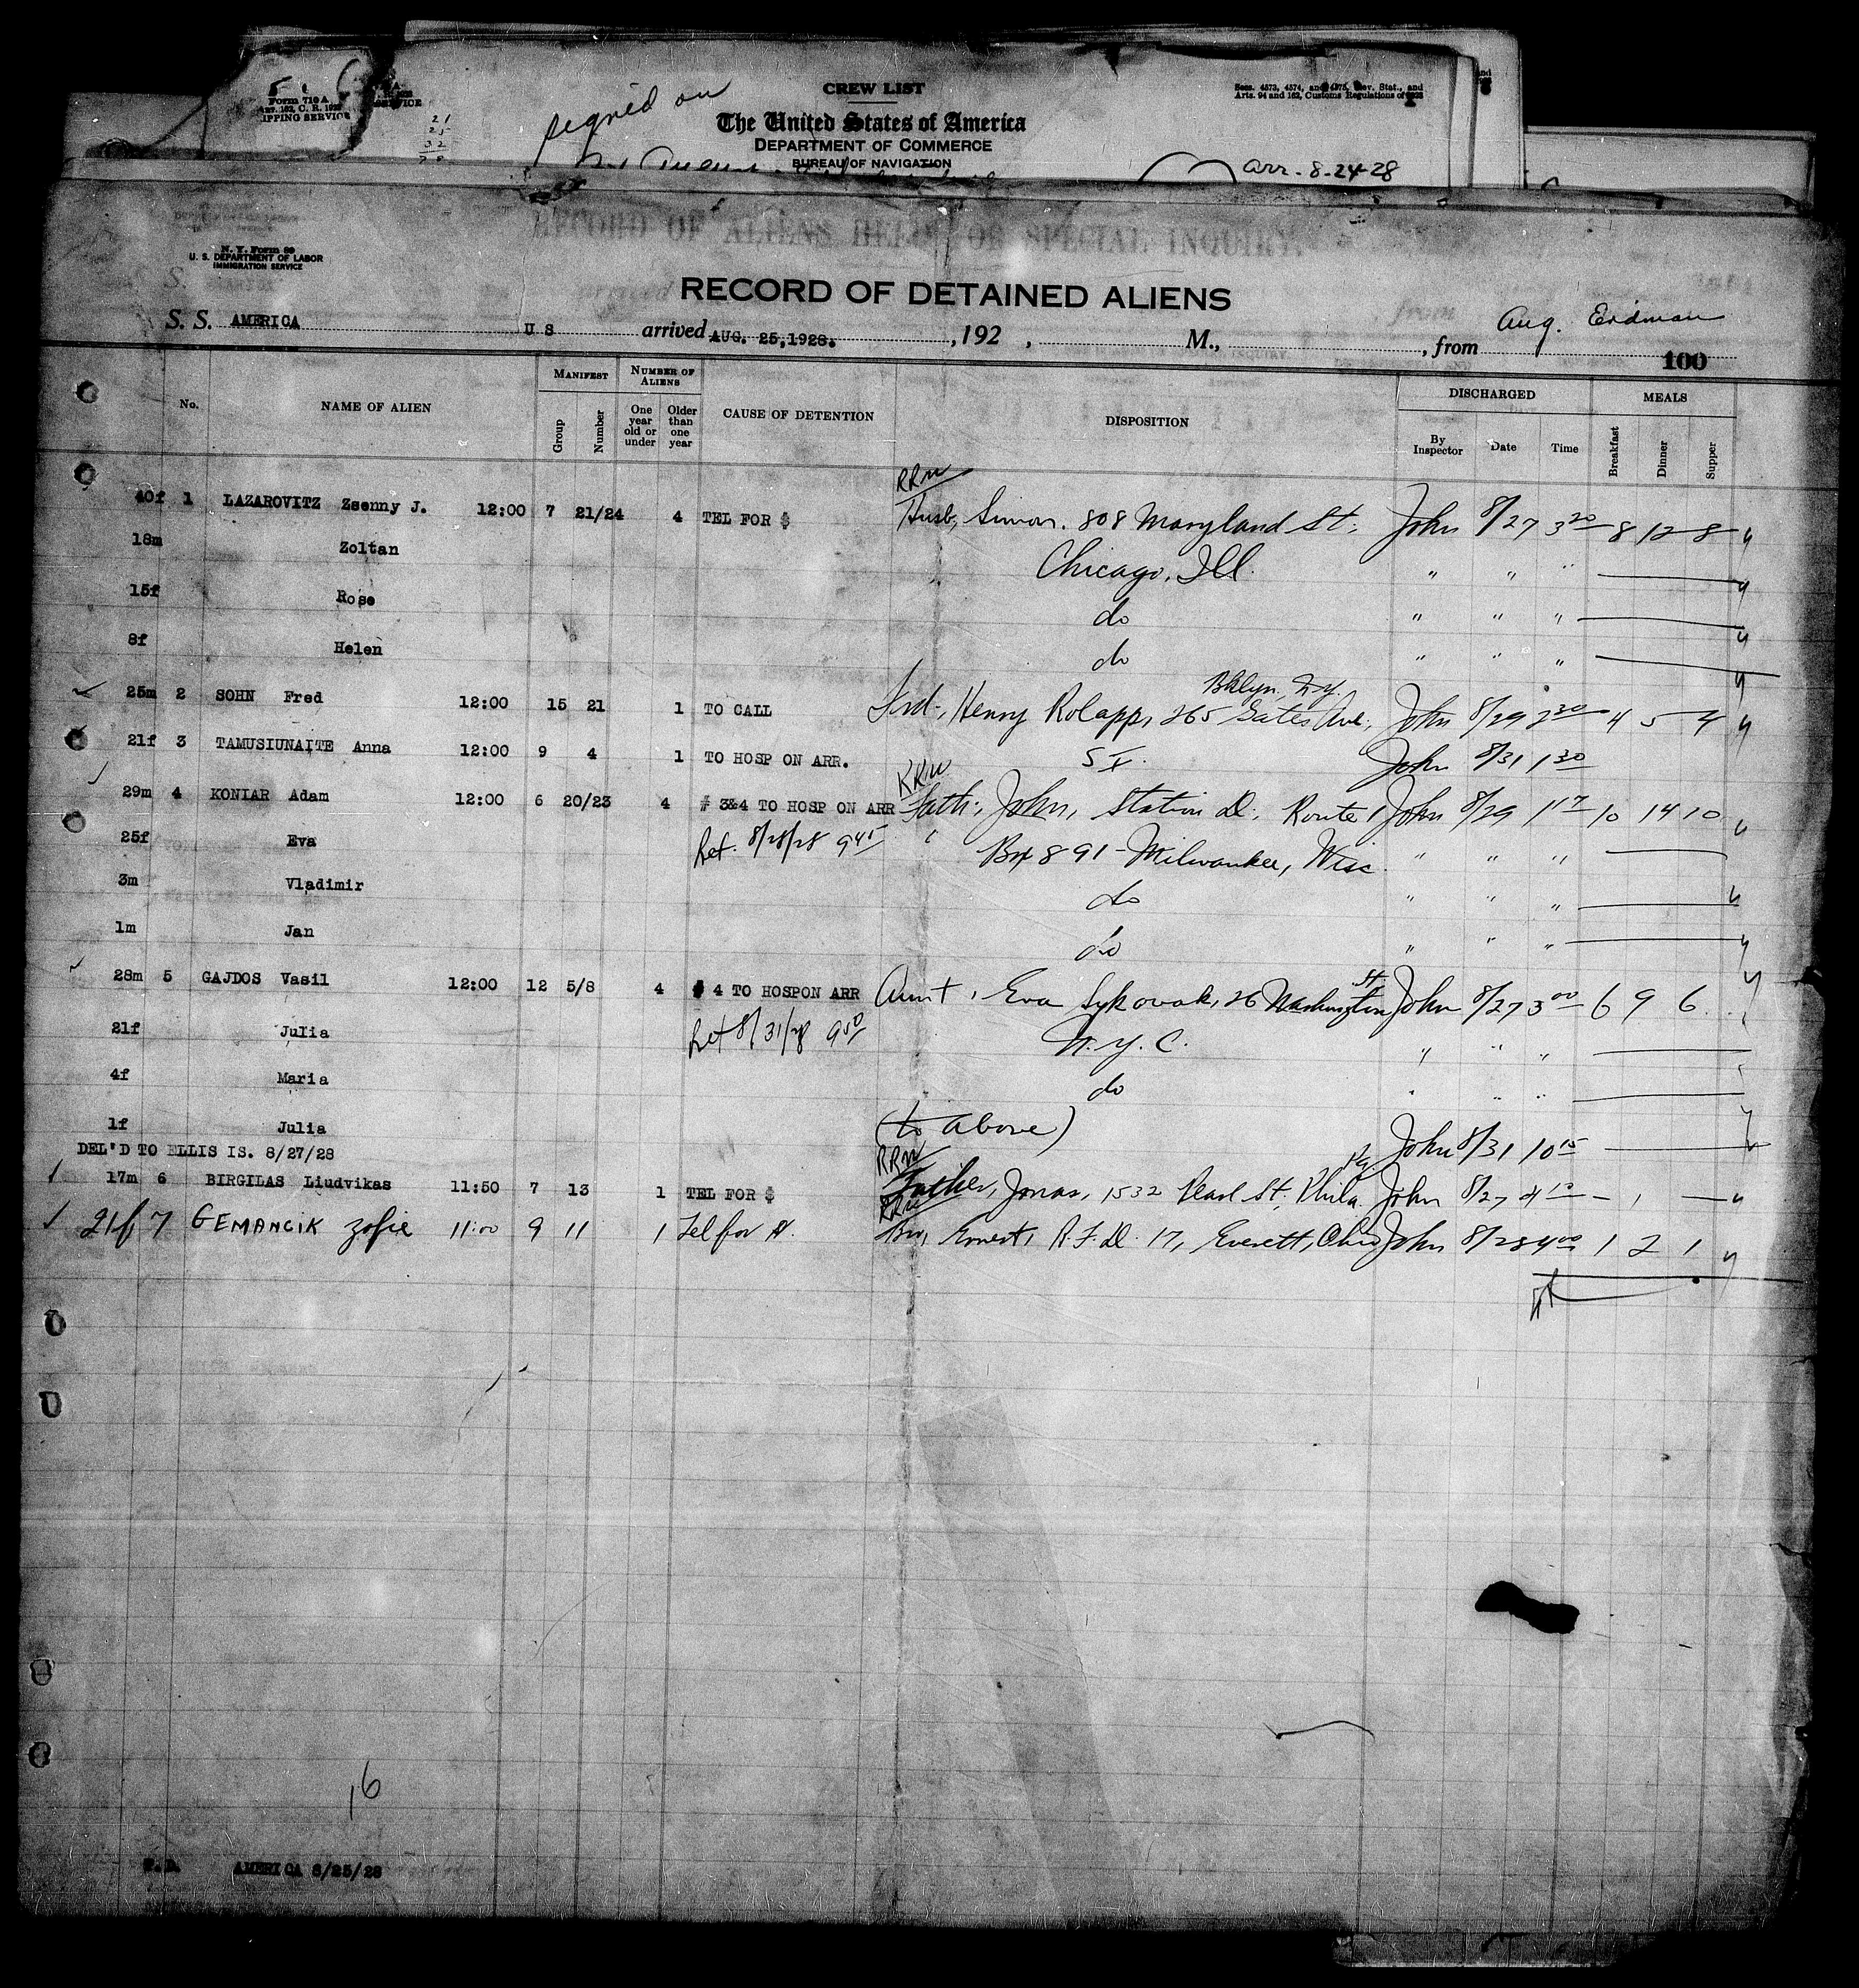 Form 710 A
ART. 162, C. R. 1923
IPPING SERVICE
signed on
CREW LIST
The United States of America
DEPARTMENT OF COMMERCE
BUREAU OF NAVIGATION
Secs. 4573, 4574, and 4575, Rev. Stat., and
Arts. 94 and 162, Customs Regulations of 1923
arr. 8-24-28
RECORD OF ALIENS HELD FOR SPECIAL INQUIRY.
N. Y. Form 99
U. S. DEPARTMENT OF LABOR
IMMIGRATION SERVICE
RECORD OF DETAINED ALIENS
S. S. AMERICA U S arrived AUG. 25,1928. , 192 , M., , from Aug. Erdman
100
No. NAME OF ALIEN MANIFEST Group Number NUMBER OF ALIENS One year old or under Older than one year CAUSE OF DETENTION DISPOSITION DISCHARGED By Inspector Date Time MEALS Breakfast Dinner Supper
RRW
40f 1 LAZAROVITZ Zsenny J. 12:00 7 21/24 4 TEL FOR $ Husb, Simon. 808 Maryland St. John 8/27 3 20 8 12 8
18m Zoltan Chicago, Ill. " " "
15f Rose do " " "
8f Helen do " " "
Bklyn, N.Y.
25m 2 SOHN Fred 12:00 15 21 1 TO CALL Frd-, Henry Rolapp, 265 Gates Ave, John 8/29 2 30 4 5 4
21f 3 TAMUSIUNAITE Anna 12:00 9 4 1 TO HOSP ON ARR. S I. John 8/31 1 30
RRW
29m 4 KONIAR Adam 12:00 6 20/23 4 # 3&4 TO HOSP ON ARR Fath:, John, Station D. Route 1 John 8/29 1 17 10 14 10
25f Eva Ret. 8/28/28 9 45 " Box 891 - Milwaukee, Wisc. " " "
3m Vladimir do " " "
1m Jan do " " "
28m 5 GAJDOS Vasil 12:00 12 5/8 4 # 4 TO HOSPON ARR Aunt, Eva Sykovak, 26 Washington St John 8/27 3 00 6 9 6
21f Julia Ret 8/31/28 9 50 N.Y.C. " " "
4f Maria do " " "
1f Julia (to above) John 8/31 10 15
DEL'D TO ELLIS IS. 8/27/28
RRW
17m 6 BIRGILAS Liudvikas 11:50 7 13 1 TEL FOR $ Father, Jonas, 1532 Pearl St, Phila. Pa. John 8/27 4 10 - 1 -
RRW
21f 7 GEMANCIK Zofie 11:00 9 11 1 Tel for $. Bro, Ernest, R.F.D. 17, Everett, Ohio John 8/28 4 00 1 2 1
16
T.D. AMERICA 8/25/28